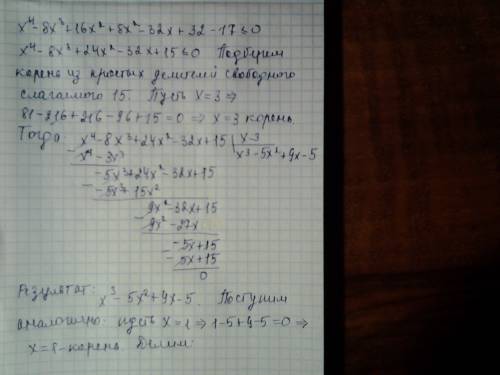 x⁴-8x³+16x²+8x²-32x+32-17=0
x⁴-8x³+24x²-32x+15=0 Подберем
корень из простых делителей свободного
слагаемого 15. Пусть x=3 ⇒
81-216+216-96+15=0 ⇒ x=3 корень.
Тогда: x⁴-8x³+24x²-32x+15 | x-3
- x⁴-3x³ x³-5x²+9x-5
-5x³+24x²-32x+15
- -5x³+15x²
9x²-32x+15
- 9x²-27x
-5x+15
- -5x+15
0
Результат: x³-5x²+9x-5. Поступим
аналогично: пусть x=1 ⇒ 1-5+9-5=0 ⇒
x=1-корень. Делим: